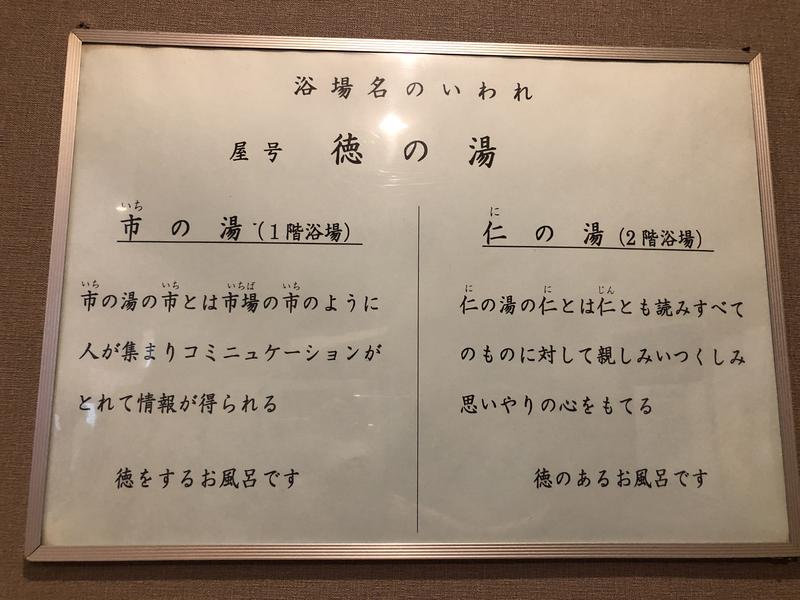 浴場名のいわれ
屋号 徳の湯
いち
市の湯(1階浴場)
いち いち いちば いち
市の湯の市とは市場の市のように
人が集まりコミニュケーションが
とれて情報が得られる
徳をするお風呂です
に
仁の湯(2階浴場)
に に じん
仁の湯の仁とは仁とも読みすべて
のものに対して親しみいつくしみ
思いやりの心をもてる
徳のあるお風呂です